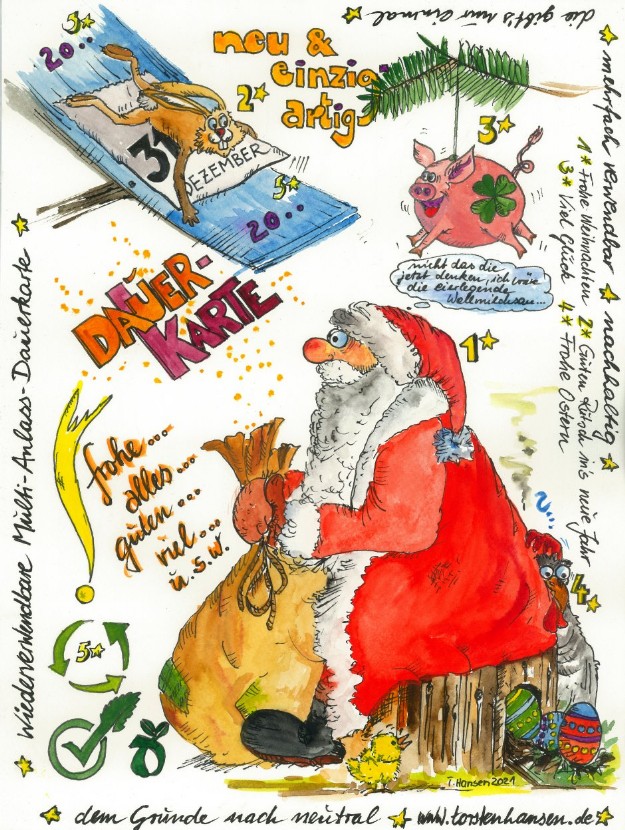 die gibt's nur einmal
neu &
einzig-
artig
5*
20..
2*
31
DEZEMBER
5*
20..
3*
nicht das die
jetzt denken, ich wäre
die eierlegende
Wollmilchsau...
mehrfach verwendbar * nachhaltig *
1* Frohe Weihnachten 2* Guten Rutsch ins neue Jahr
3* Viel Glück 4* Frohe Ostern
DAUER-
KARTE
1*
frohe...
alles...
guten...
viel...
u.s.w.
4*
5*
T. Hansen 2021
Wiederverwendbare Multi-Anlass-Dauerkarte
dem Grunde nach neutral * www.torstenhansen.de